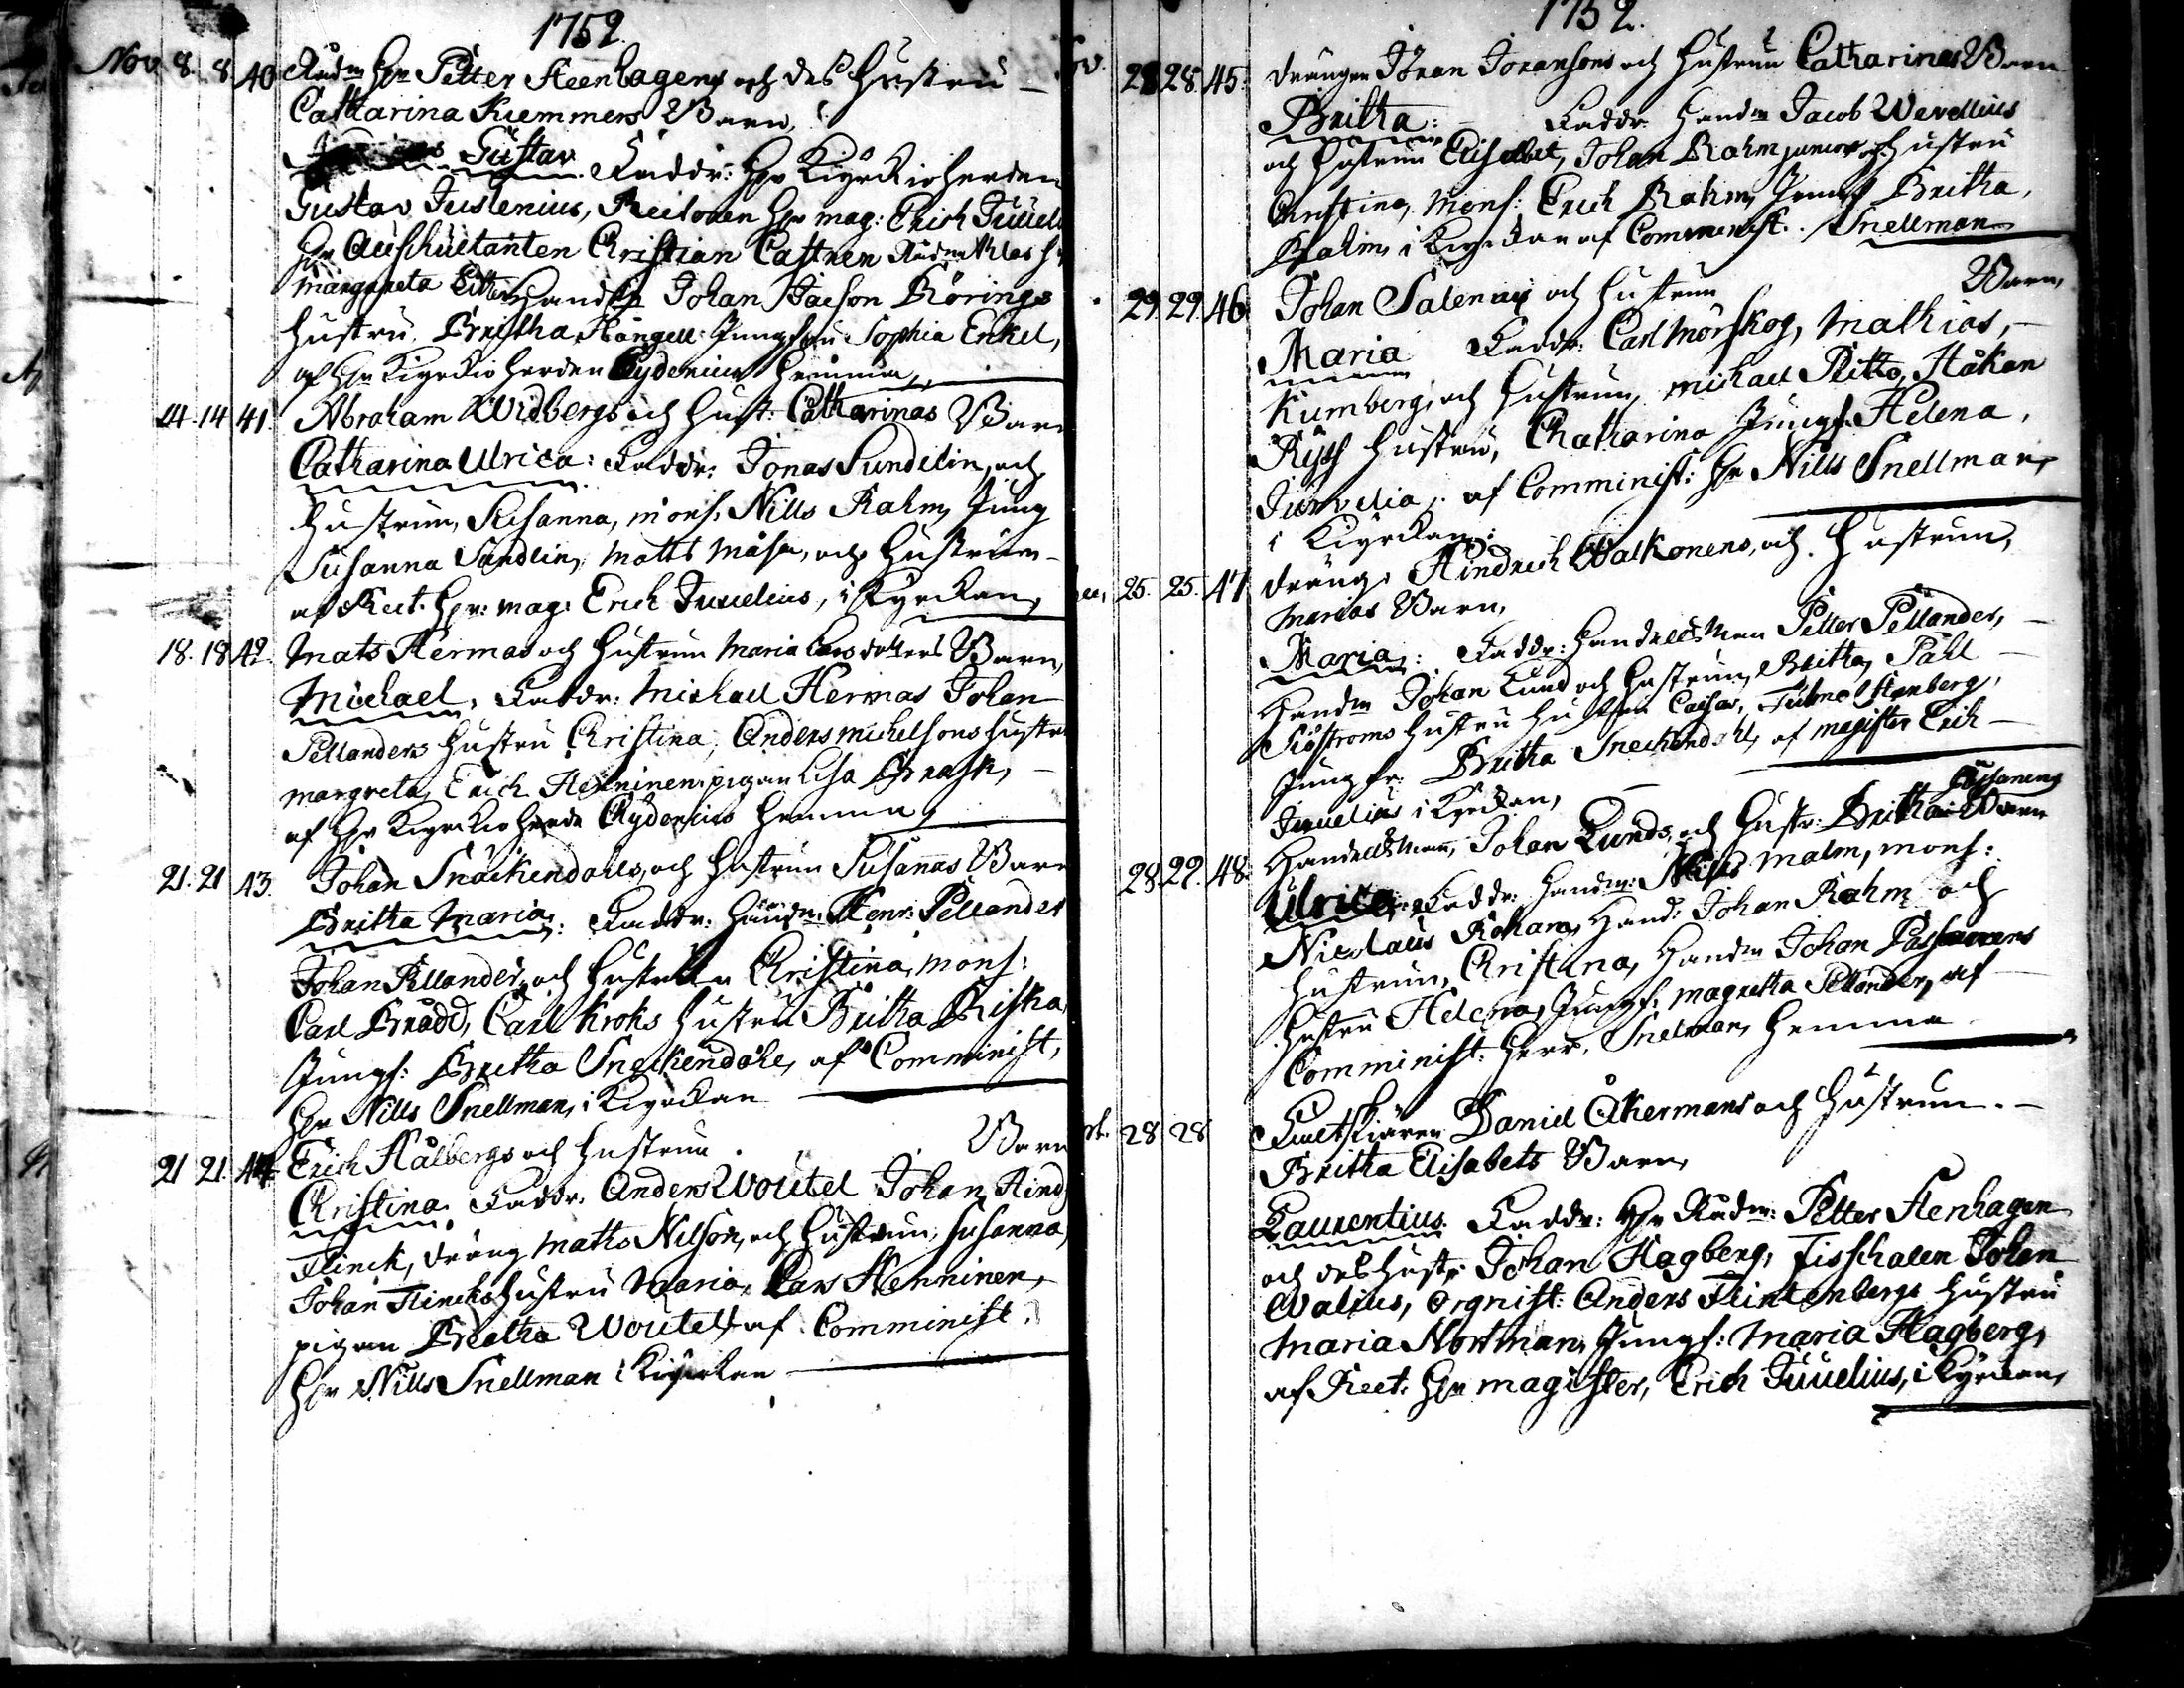 1752
Nov 8. 8 40 Rådm Hr Petter Steenhagens och des Hustru
Catharina Kiemmers Barn,
Gustav. Faddr: Hr Kyrckioherden
Gustav Juslenius, Rectoren Hr mag: Erich Juvel
Hr Auschultanten Christian Castren Rådm
Margareta Johan Jacson Rörings
Hustru. Britha Hångell: Jungfru Sophia Enkel,
af Hr Kyrckioherden Rydenius hemma,
14. 14 41. Abraham Widbergs och Hust: Catharinas Barn
Catharina Ulrica: Faddr: Jonas Sundelin, och
Hustrun, Susanna, mons: Nills Rahm, Jung
Susanna Sandlin, Matts Måsa, och Hustrun
af Rect. Hr: mag: Erich Juvelius, i Kyrckan,
18. 18 42. Mats Hermas och Hustrun Maria Larsdotters Barn,
Michael, Faddr: Michael Hermas Johan
Pellanders Hustru Christina, Anders Michelsons Hustru
Margreta, Erich Henninen, pigan Lisa Brask,
af Hr Kyrckioherde Rydenius hemma,
21. 21 43. Johan Snäckendahls, och Hustrun Susannas Barn
Britha Maria: Faddr: Handm: Henr: Pellander
Johan Pellander, och Hustrun Christina, mons:
Carl Brådd, Carl Kroks Hustru Britha Riska,
Jungf: Britha Sneckendahl, af Comminist,
Hr Nills Snellman, i Kyrckan
21 21. 44 Erich Stålbergs och Hustrun Barn
Christina. Faddr. Anders Woutel Johan Hind
Flinck, dräng Maths Nilson, och Hustrun, Susanna,
Johan Flincks Hustru Maria, Lars Henninen,
pigan Britha Woutel, af Comminist.
Hr Nills Snellman i Kyrckan
1752.
28 28 45. Drängen Jöran Joransons och Hustrun Catharinas Barn
Britha: Faddr: Handm Jacob Wevellius
och Hustrun Elisabet, Johan Rahm junior och Hustru
Christina, Mons: Erich Rahm, Jungf Britha,
Rahm, i Kyrckan af Comminist. Snellman
29. 29. 46 Johan Salenius och Hustrun Barn,
Maria Faddr: Carl Mörskog, Mathias,
Kumberg, och Hustrun, Michael Pitko, Håkan
Hustru, Chatharina Jungf. Helena,
Juvelia, af Comminist: Hr Nills Snellman,
i Kyrckan:
25. 25. 47 Dräng: Hindrich Walkonens, och Hustrun,
Marias Barn,
Maria: Faddr: Handelsman Petter Pellander,
Handm Johan Lund och Hustrun, Britha, Påhl
Siöströms Hustru Hustru Caisa, Stenberg,
Jungfr: Britha Sneckendahl, af Magister Erich
Juvelius i Kyrckan,
28 29. 48. Handelsman, Johan Lunds, och Hustr: Britha Barn
Ulrica, Faddr: Handm: Nills Malm, mons:
Nicolaus Rahm, Hand: Johan Rahm och
Hustrun, Christina, Handm Johan
Hustru Helena, Jungf: Magretha Pellander, af
Comminist: Herr. Snelman, hemma
28 28 Daniel Åkermans och Hustrun.
Britha Elisabets Barn,
Laurentius. Faddr: Hr Rådm: Petter Stenhagen
och des Hustr: Johan Hagberg, Fisschalen Johan
Walius, Orgnist: Anders Flintenbergs Hustru
Maria Nortman, Jungf: Maria Hagberg,
af Rect: Hr Magister, Erich Juvelius, i Kyrckan,